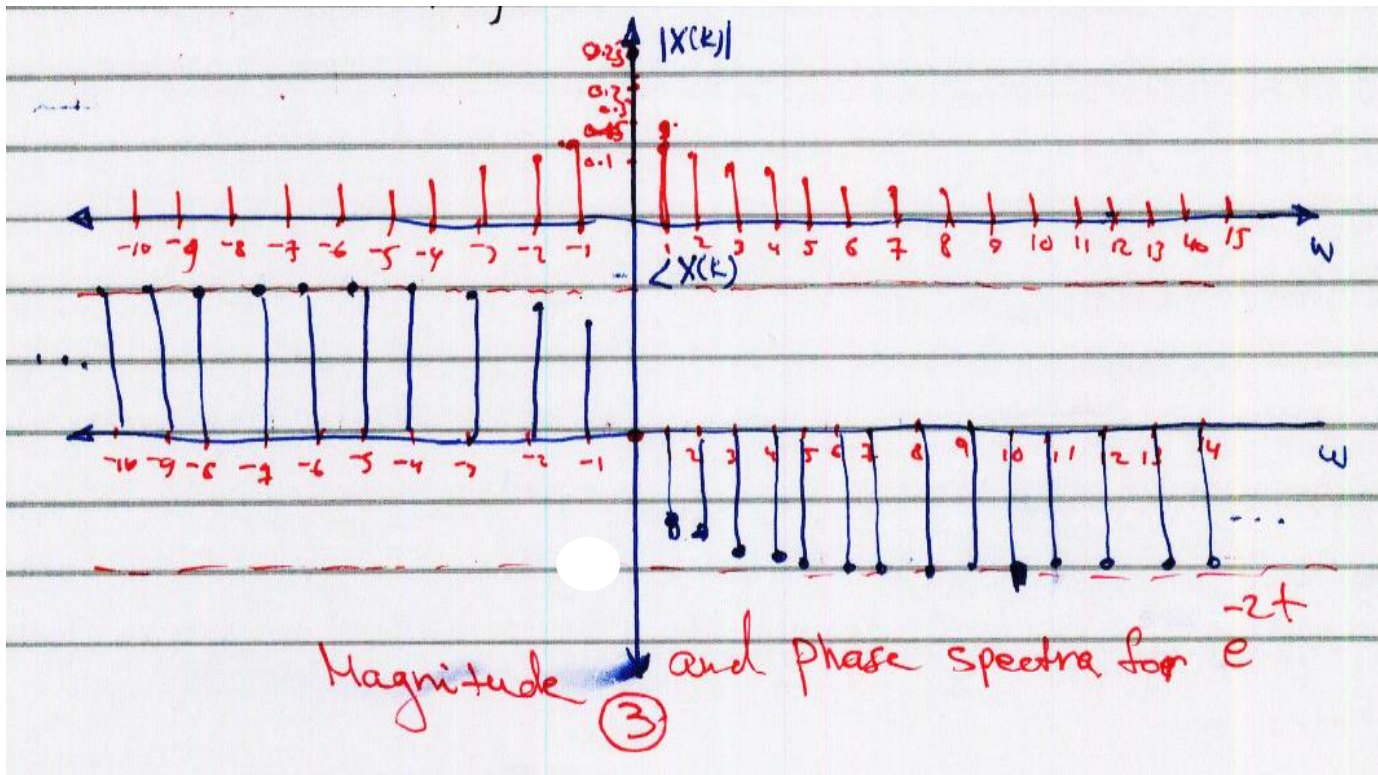 |X(k)|
0.25
0.2
0.1
-10 -9 -8 -7 -6 -5 -4 -3 -2 -1 1 2 3 4 5 6 7 8 9 10 11 12 13 40 15
ω
∠X(k)
...
-10 -9 -8 -7 -6 -5 -4 -3 -2 -1 2 3 4 5 6 7 8 9 10 11 12 13 14
ω
...
Magnitude and phase spectra for e^-2t
3